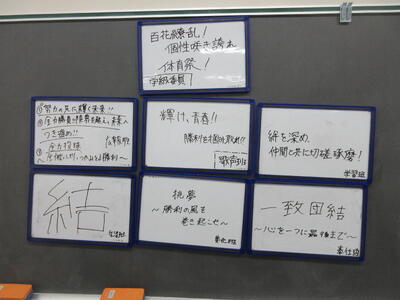 百花繚乱!
個性咲き誇れ
体育祭!
学級委員
①努力の先に輝く未来!!
②全力勝負で限界を越え、未来へ
つき進め!!
広報班
③全力投球
輝け、青春!!
勝利を掴み取れ!!
歌声班
絆を深め、
仲間と共に切磋琢磨!
学習班
結
生活班
挑夢
〜勝利の風を
巻き起こせ〜
美化班
一致団結
〜心を一つに最後まで〜
奉仕班